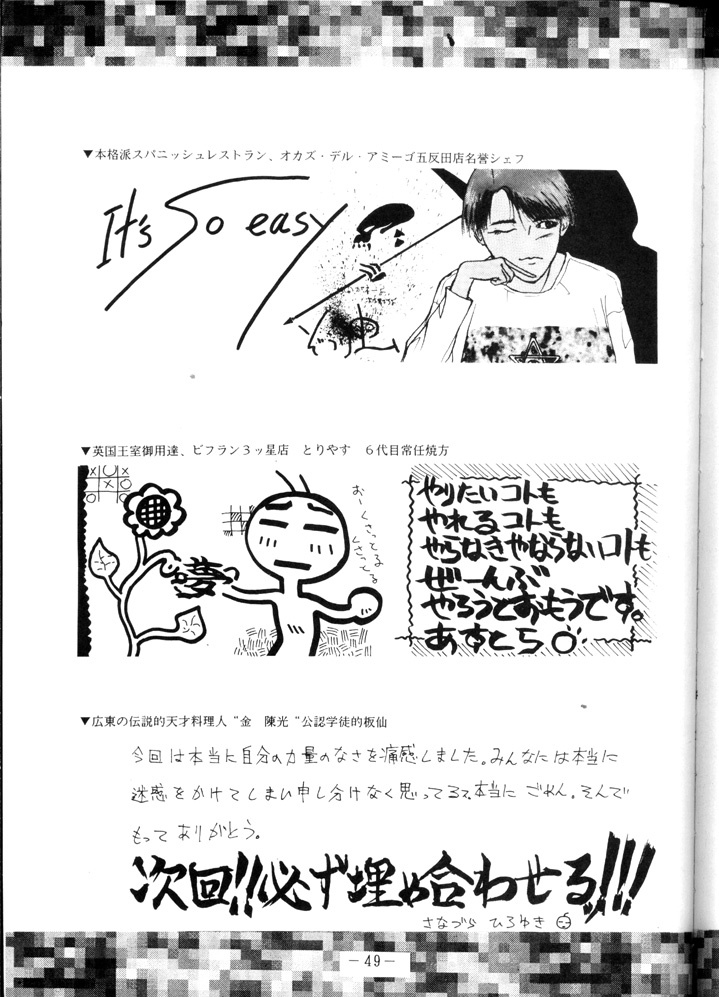 ▼本格派スパニッシュレストラン、オカズ・デル・アミーゴ五反田店名誉シェフ
It's So easy
▼英国王室御用達、ビフラン３ッ星店　とりやす　６代目常任焼方
× ○ ×
× ○
○ ○
夢
おーくさってる
くさってる
やりたいコトも
やれるコトも
やらなきゃならないコトも
ぜーんぶ
やろうとおもうです。
あすとら
▼広東の伝説的天才料理人“金　陳光“公認学徒的板仙
今回は本当に自分の力量のなさを痛感しました。みんなには本当に
迷惑をかけてしまい申し分けなく思ってるぞ、本当に ごめん。そんで
もって ありがとう。
次回!!必ず埋め合わせるッ!!!
さなづら ひろゆき
－49－